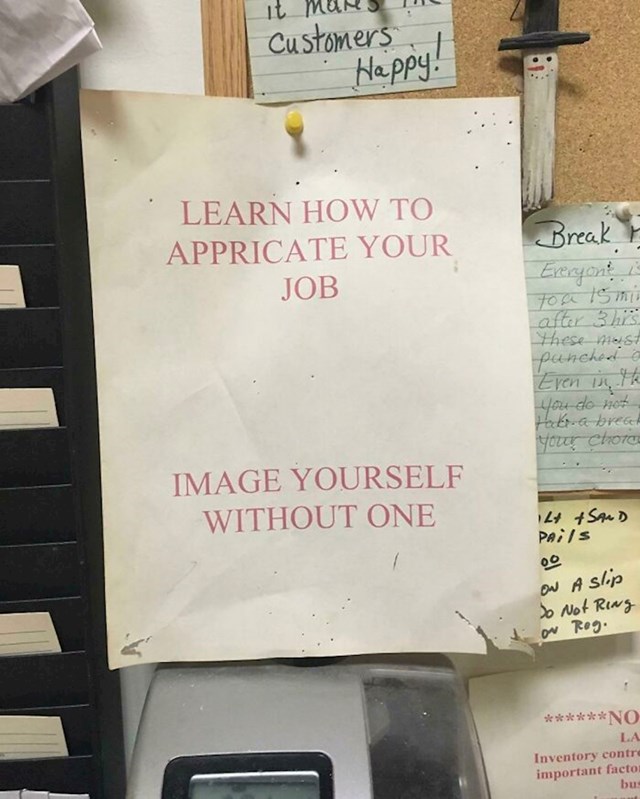 it makes the
Customers
Happy!
LEARN HOW TO
APPRICATE YOUR
JOB
IMAGE YOURSELF
WITHOUT ONE
Break
Everyone is
to a 15 min
after 3 hrs
These must
punched
Even in
you do not
take a break
your choice
+ SAND
PAils
00
ON A Slip
Do Not RING
ON Reg.
******NO
LA
Inventory contr
important facto
bu